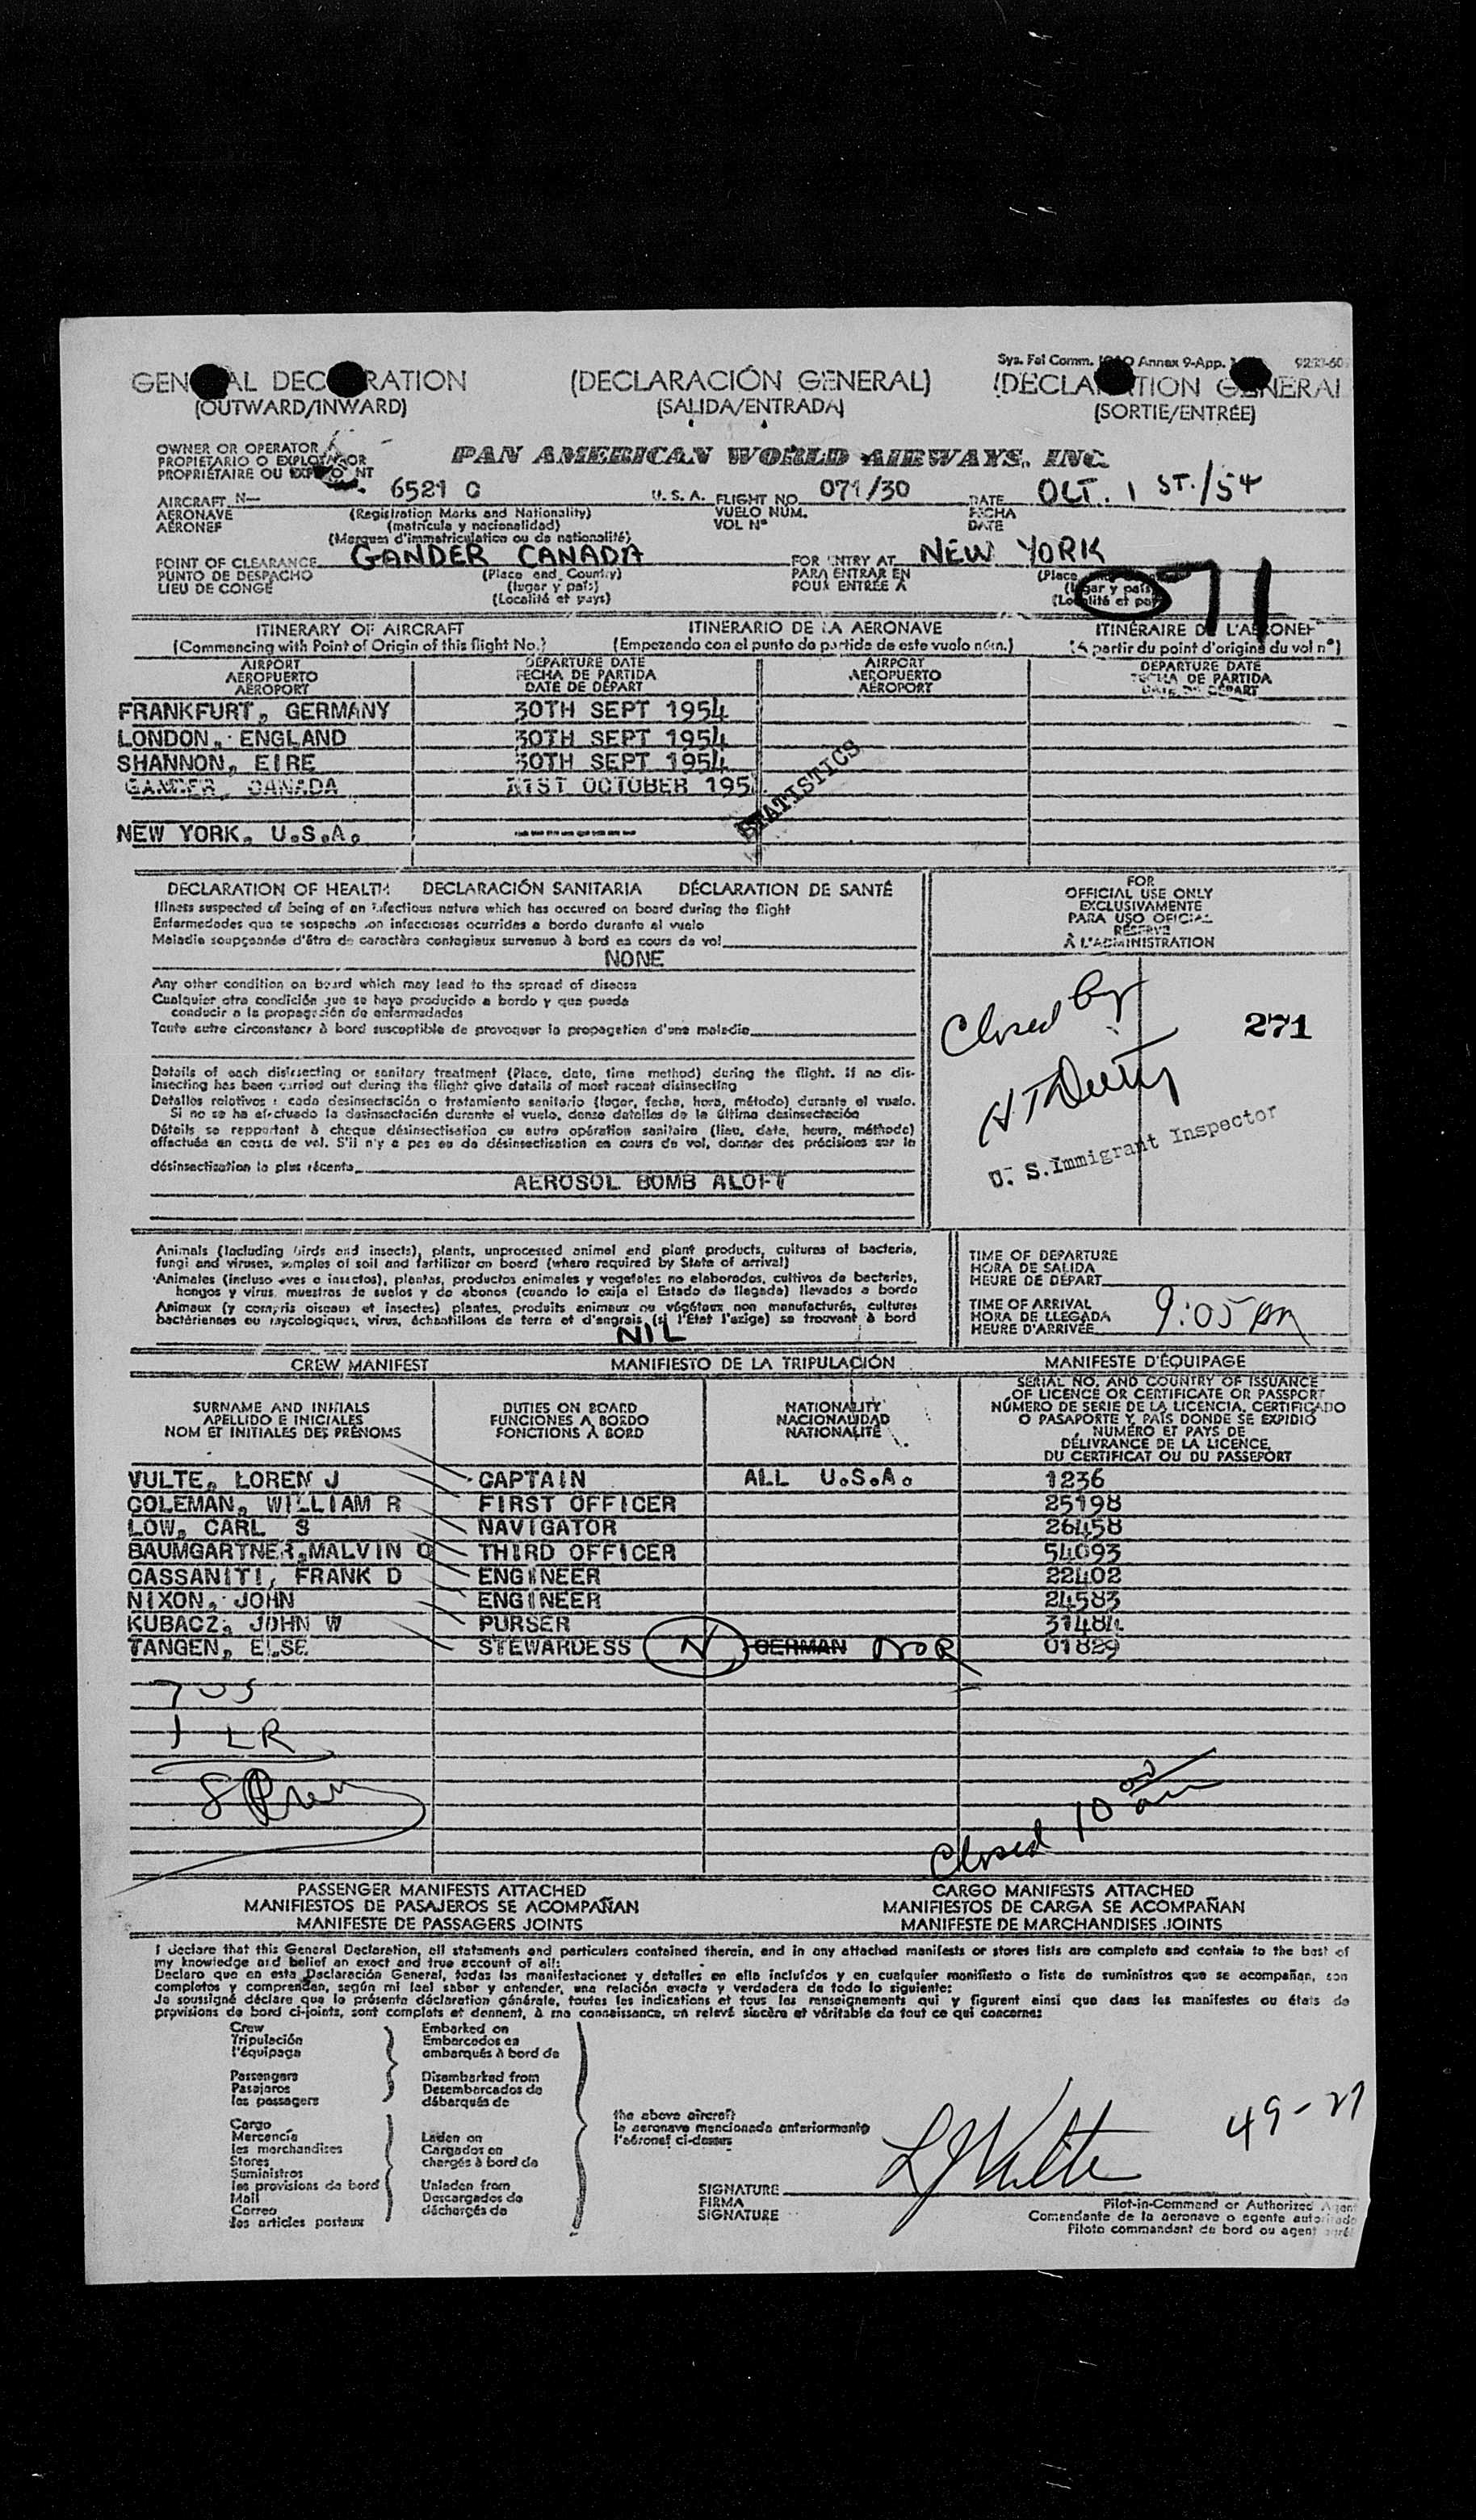 Sys. Fal Comm. Annex 9-App.
GENERAL DECLARATION (DECLARACIÓN GENERAL) (DÉCLARATION GÉNÉRALE
(OUTWARD/INWARD) (SALIDA/ENTRADA) (SORTIE/ENTRÉE)
OWNER OR OPERATOR
PROPIETARIO O EXPLOTADOR
PROPRIÉTAIRE OU EXPLOITANT
PAN AMERICAN WORLD AIRWAYS, INC.
AIRCRAFT N— 6521 C U. S. A. FLIGHT NO. 071/30 DATE OCT. 1 ST./54
AERONAVE (Registration Marks and Nationality) VUELO NÚM. FECHA
AÉRONEF (matrícula y nacionalidad) VOL N° DATE
(Marques d'immatriculation ou de nationalité)
POINT OF CLEARANCE GANDER CANADA FOR ENTRY AT NEW YORK
PUNTO DE DESPACHO (Place and Country) PARA ENTRAR EN (Place
LIEU DE CONGÉ (lugar y país) POUR ENTRÉE À (lugar y país)
(Localité et pays) (Localité et pays)
71
ITINERARY OF AIRCRAFT ITINERARIO DE LA AERONAVE ITINÉRAIRE DE L'AÉRONEF
(Commencing with Point of Origin of this flight No.) (Empezando con el punto de partida de este vuelo núm.) (A partir du point d'origine du vol n°)
AIRPORT DEPARTURE DATE AIRPORT DEPARTURE DATE
AEROPUERTO FECHA DE PARTIDA AEROPUERTO FECHA DE PARTIDA
AÉROPORT DATE DE DÉPART AÉROPORT DATE DE DÉPART
FRANKFURT, GERMANY 30TH SEPT 1954
LONDON, ENGLAND 30TH SEPT 1954
SHANNON, EIRE 30TH SEPT 1954
GANDER, CANADA 1ST OCTOBER 195
STATISTICS
NEW YORK, U.S.A. --------
DECLARATION OF HEALTH DECLARACIÓN SANITARIA DÉCLARATION DE SANTÉ
Illness suspected of being of an infectious nature which has occured on board during the flight
Enfermedades que se sospecha son infecciosas ocurridas a bordo durante el vuelo
Maladie soupçonnée d'être de caractère contagieux survenue à bord en cours de vol
NONE
Any other condition on board which may lead to the spread of disease
Cualquier otra condición que se haya producido a bordo y que pueda
conducir a la propagación de enfermedades
Toute autre circonstance à bord susceptible de provoquer la propagation d'une maladie
Details of each disinsecting or sanitary treatment (Place, date, time method) during the flight. If no dis-
insecting has been carried out during the flight give details of most recent disinsecting
Detalles relativos a cada desinsectación o tratamiento sanitario (lugar, fecha, hora, método) durante el vuelo.
Si no se ha efectuado la desinsectación durante el vuelo, dense detalles de la última desinsectación
Détails se rapportant à chaque désinsectisation ou autre opération sanitaire (lieu, date, heure, méthode)
effectuée en cours de vol. S'il n'y a pas eu de désinsectisation en cours de vol, donner des précisions sur la
désinsectisation la plus récente
AEROSOL BOMB ALOFT
FOR
OFFICIAL USE ONLY
EXCLUSIVAMENTE
PARA USO OFICIAL
RÉSERVÉ
À L'ADMINISTRATION
Closed by
271
U. S. Immigrant Inspector
Animals (including birds and insects), plants, unprocessed animal and plant products, cultures of bacteria,
fungi and viruses, samples of soil and fertilizer on board (where required by State of arrival)
Animales (incluso aves e insectos), plantas, productos animales y vegetales no elaborados, cultivos de bacterias,
hongos y virus, muestras de suelos y de abonos (cuando lo exija el Estado de llegada) llevados a bordo
Animaux (y compris oiseaux et insectes) plantes, produits animaux ou végétaux non manufacturés, cultures
bactériennes ou mycologiques, virus, échantillons de terre et d'engrais (si l'État l'exige) se trouvant à bord
NIL
TIME OF DEPARTURE
HORA DE SALIDA
HEURE DE DÉPART
TIME OF ARRIVAL
HORA DE LLEGADA
HEURE D'ARRIVÉE 9:05 pm
CREW MANIFEST MANIFIESTO DE LA TRIPULACIÓN MANIFESTE D'ÉQUIPAGE
SURNAME AND INITIALS
APELLIDO E INICIALES
NOM ET INITIALES DES PRÉNOMS
DUTIES ON BOARD
FUNCIONES A BORDO
FONCTIONS A BORD
NATIONALITY
NACIONALIDAD
NATIONALITÉ
SERIAL NO. AND COUNTRY OF ISSUANCE
OF LICENCE OR CERTIFICATE OR PASSPORT
NÚMERO DE SERIE DE LA LICENCIA, CERTIFICADO
O PASAPORTE Y PAÍS DONDE SE EXPIDIÓ
NUMÉRO ET PAYS DE
DÉLIVRANCE DE LA LICENCE,
DU CERTIFICAT OU DU PASSEPORT
VULTE, LOREN J CAPTAIN ALL U.S.A. 1236
COLEMAN, WILLIAM R FIRST OFFICER 25198
LOW, CARL S NAVIGATOR 26458
BAUMGARTNER, MALVIN O THIRD OFFICER 54093
CASSANITI, FRANK D ENGINEER 22402
NIXON, JOHN ENGINEER 24583
KUBACZ, JOHN W PURSER 31484
TANGEN, ELSE STEWARDESS N GERMAN NOR 01829
7 US
1 LR
8
Closed 10 00 am
PASSENGER MANIFESTS ATTACHED CARGO MANIFESTS ATTACHED
MANIFIESTOS DE PASAJEROS SE ACOMPAÑAN MANIFIESTOS DE CARGA SE ACOMPAÑAN
MANIFESTE DE PASSAGERS JOINTS MANIFESTE DE MARCHANDISES JOINTS
I declare that this General Declaration, all statements and particulars contained therein, and in any attached manifests or stores lists are complete and contain to the best of
my knowledge and belief an exact and true account of all:
Declaro que en esta Declaración General, todas las manifestaciones y detalles en ella incluídos y en cualquier manifiesto o lista de suministros que se acompañan, son
completos y comprenden, según mi leal saber y entender, una relación exacta y verdadera de todo lo siguiente:
Je soussigné déclare que la présente déclaration générale, toutes les indications et tous les renseignements qui y figurent ainsi que dans les manifestes ou états de
provisions de bord ci-joints, sont complets et donnent, à ma connaissance, un relevé sincère et véritable de tout ce qui concerne:
Crew
Tripulación
l'équipage
Passengers
Pasajeros
les passagers
Embarked on
Embarcados en
embarqués à bord de
Disembarked from
Desembarcados de
débarqués de
Cargo
Mercancía
les marchandises
Stores
Suministros
les provisions de bord
Mail
Correo
les articles postaux
Laden on
Cargados en
chargés à bord de
Unladen from
Descargados de
déchargés de
the above aircraft
la aeronave mencionada anteriormente
l'aéronef ci-dessus
49-27
SIGNATURE LJVulte
FIRMA
SIGNATURE
Pilot-in-Command or Authorized Agent
Comandante de la aeronave o agente autorizado
Pilote commandant de bord ou agent agréé